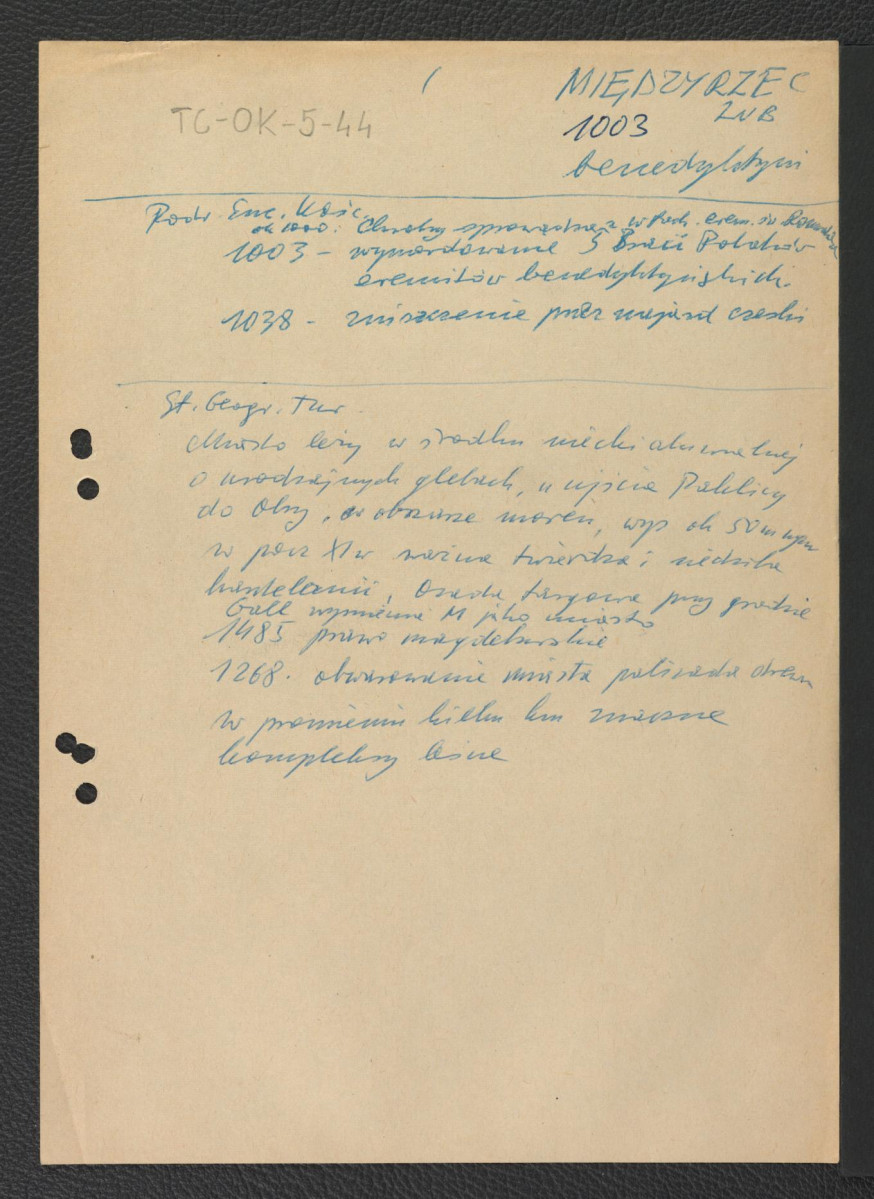 MIĘDZYRZEC
TC-OK-5-44
LUB
1003
benedyktyni
Podr. Enc. Kośc.
ok 1000: Chrobry sprowadza z w. Rom. erem. św Romualda
1003 - wymordowanie 5 Braci Polaków
eremitów benedyktyńskich.
1038 - zniszczenie przez najazd czeski
Sł. Geogr. Tur.
Miasto leży w środku niecki aluwialnej
o urodzajnych glebach, u ujścia Paklicy
do Obry, w obszarze moren, wys ok 50 m npm
w pocz XI w ważna twierdza i siedziba
kasztelanii, osada targowa przy grodzie
Gall wymienia M jako miasto
1485 prawo magdeburskie
1268. obwarowanie miasta palisadą drewn
w promieniu kilku km znaczne
kompleksy leśne